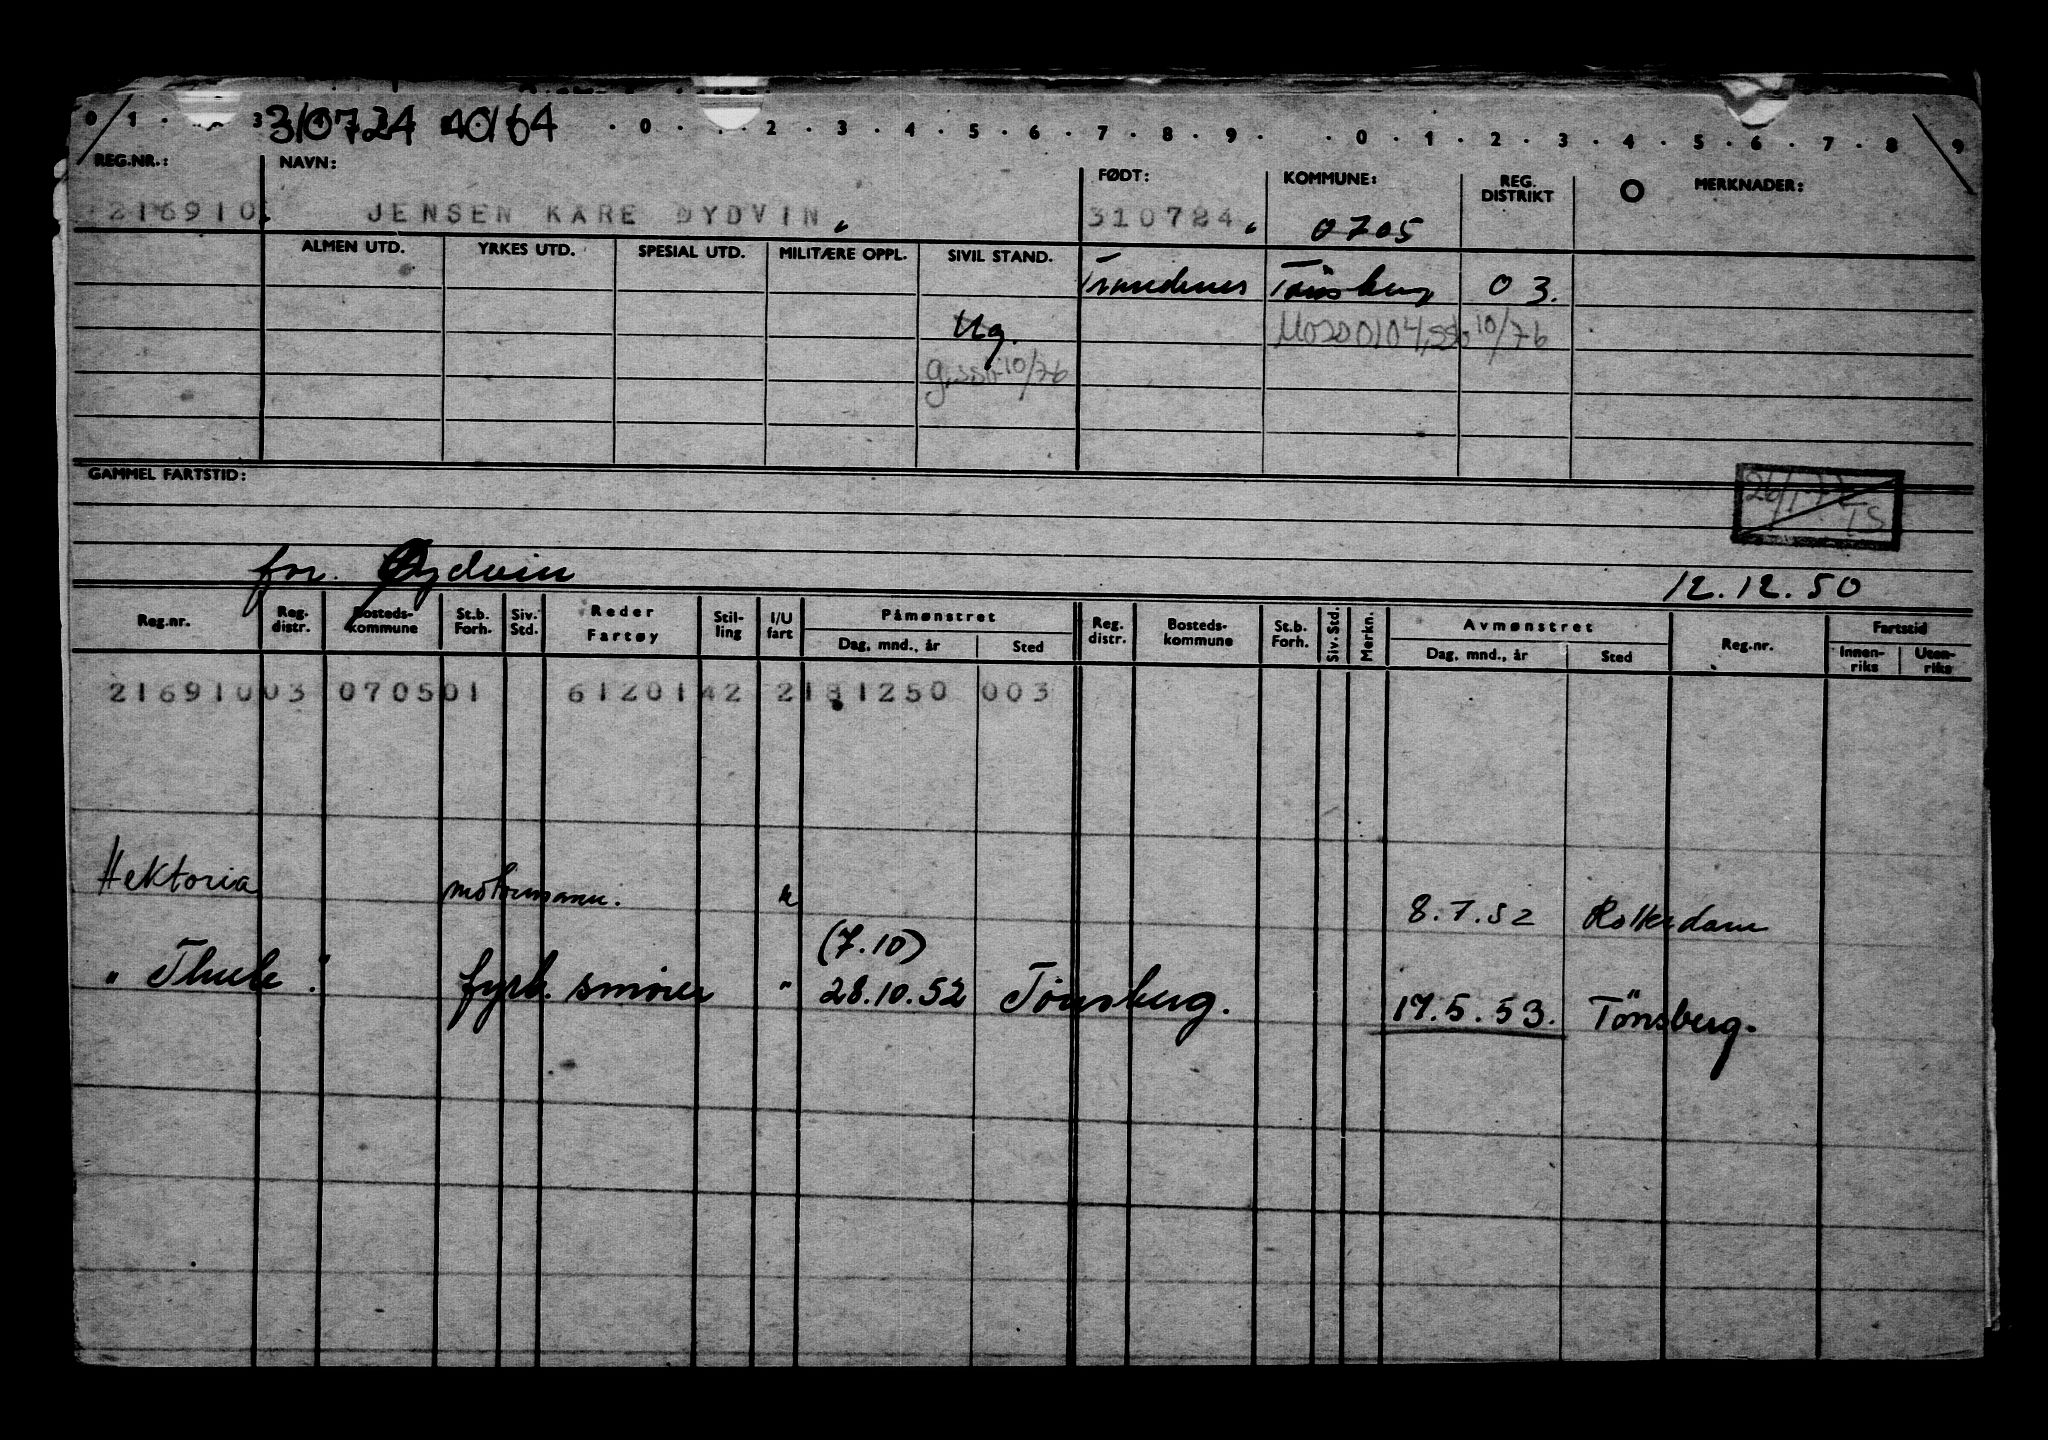 0 1 . 3 310724 40164 . 0 . . 2 . 3 . 4 . 5 . 6 . 7 . 8 . 9 . . 0 . 1 . 2 . 3 . 4 . 5 . 6 . 7 . 8 9
REG.NR.: NAVN: FØDT: KOMMUNE: REG. DISTRIKT O MERKNADER:
216910 JENSEN KARE ØYDVIN 310724 0705
ALMEN UTD. YRKES UTD. SPESIAL UTD. MILITÆRE OPPL. SIVIL STAND. Trandenes Tønsberg 03.
Ug. Moss 0104, 10/76
g, 10/76
GAMMEL FARTSTID:
for. Øydvin 12.12.50
Reg.nr. Reg. distr. Bosteds- kommune St.b. Forh. Siv. Std. Reder Fartøy Stil- ling I/U fart Påmønstret Dag, mnd., år Sted Reg. distr. Bosteds- kommune St.b. Forh. Siv. Std. Merkn. Avmønstret Dag, mnd., år Sted Reg.nr. Fartstid Innen- riks Uten- riks
21691003 070501 6120142 2181250 003
Hektoria motormann. u 8.7.52 Rotterdam
(7.10)
" Thule ". fyrb. smører " 28.10.52 Tønsberg. 17.5.53. Tönsberg.